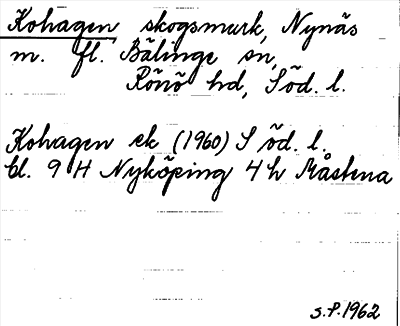 Kohagen skogsmark, Nynäs
m. fl. Bälinge sn,
Rönö hd, Söd. l.
Kohagen ek (1960) Söd. l.
bl. 9 H Nyköping 4 h Måstena
S.P. 1962